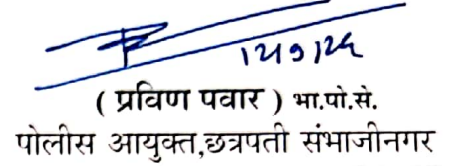 ( प्रविण पवार ) भा.पो.से.
पोलीस आयुक्त,छत्रपती संभाजीनगर